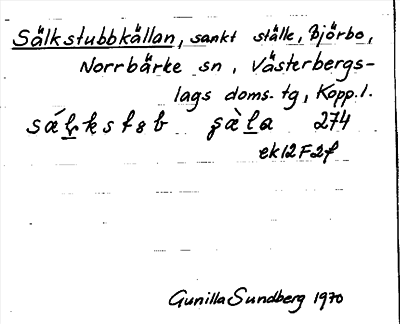 Sälkstubbkällan, sankt ställe, Björbo,
Norrbärke sn, Västerbergs-
lags doms. tg, Kopp.l.
274
ek12F2f
Gunilla Sundberg 1970